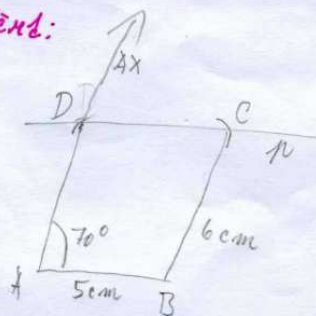 AX
D C
p
70° 6cm
A 5cm B